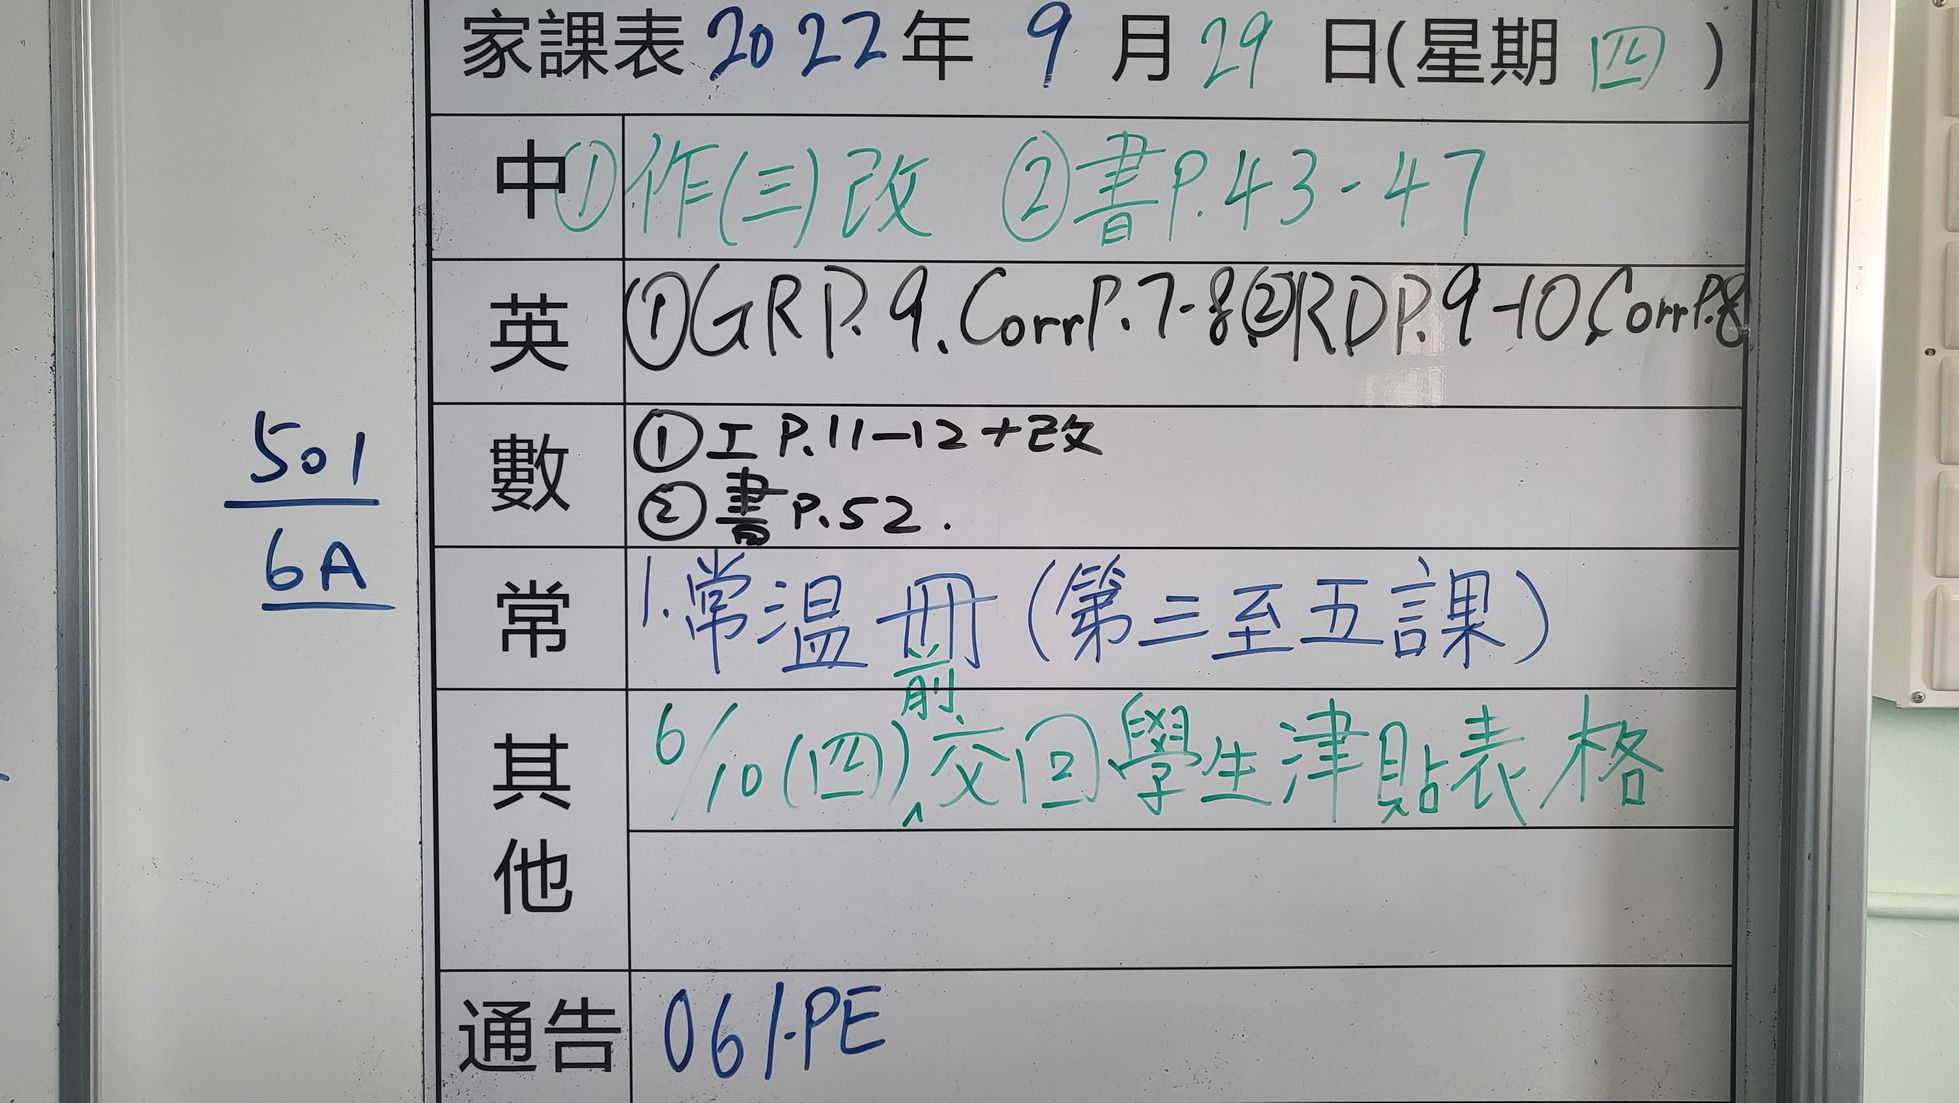 家課表 2022年 9 月 29 日(星期 四 )
中 ①作(三)改 ②書P.43-47
英 ①GR P.9, Corr P.7-8 ②RD P.9-10, Corr P.8
數 ①工 P.11-12+改
②書 P.52.
501
6A
常 1.常溫冊(第三至五課)
其他 6/10(四)前交回學生津貼表格
通告 061.PE